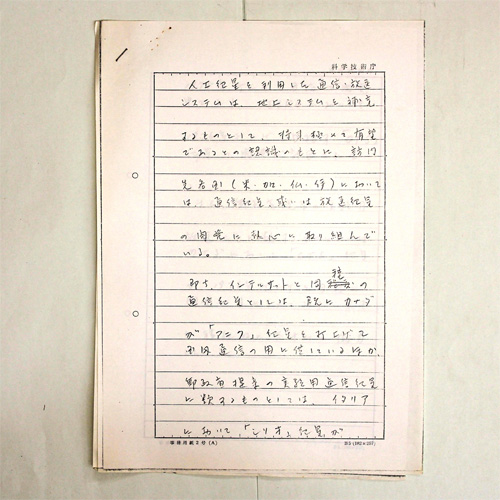 科学技術庁
人工衛星を利用した通信・放送
システムは、地上システムを補完
するものとして、将来極めて有望
であるとの認識のもとに、訪問
先各国(米・加・仏・伊)において
は、通信衛星、或いは放送衛星
の開発に熱心に取り組んで
いる。
即ち、インテルサットと同種の
通信衛星としては、既にカナダ
が「アニク」衛星を打上げて
国内通信の用に供しているほか
郵政省提案の実験用通信衛星
に類するものとしては、イタリア
において、「シリオ」衛星が
事務用紙2号(A)